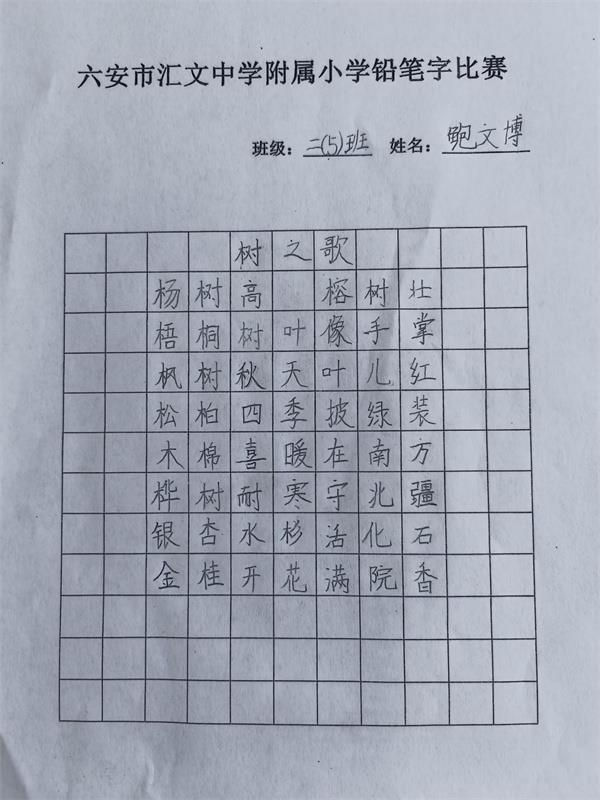 六安市汇文中学附属小学铅笔字比赛
班级：二(5)班 姓名：鲍文博
树之歌
杨树高 榕树壮
梧桐树叶像手掌
枫树秋天叶儿红
松柏四季披绿装
木棉喜暖在南方
桦树耐寒守北疆
银杏水杉活化石
金桂开花满院香